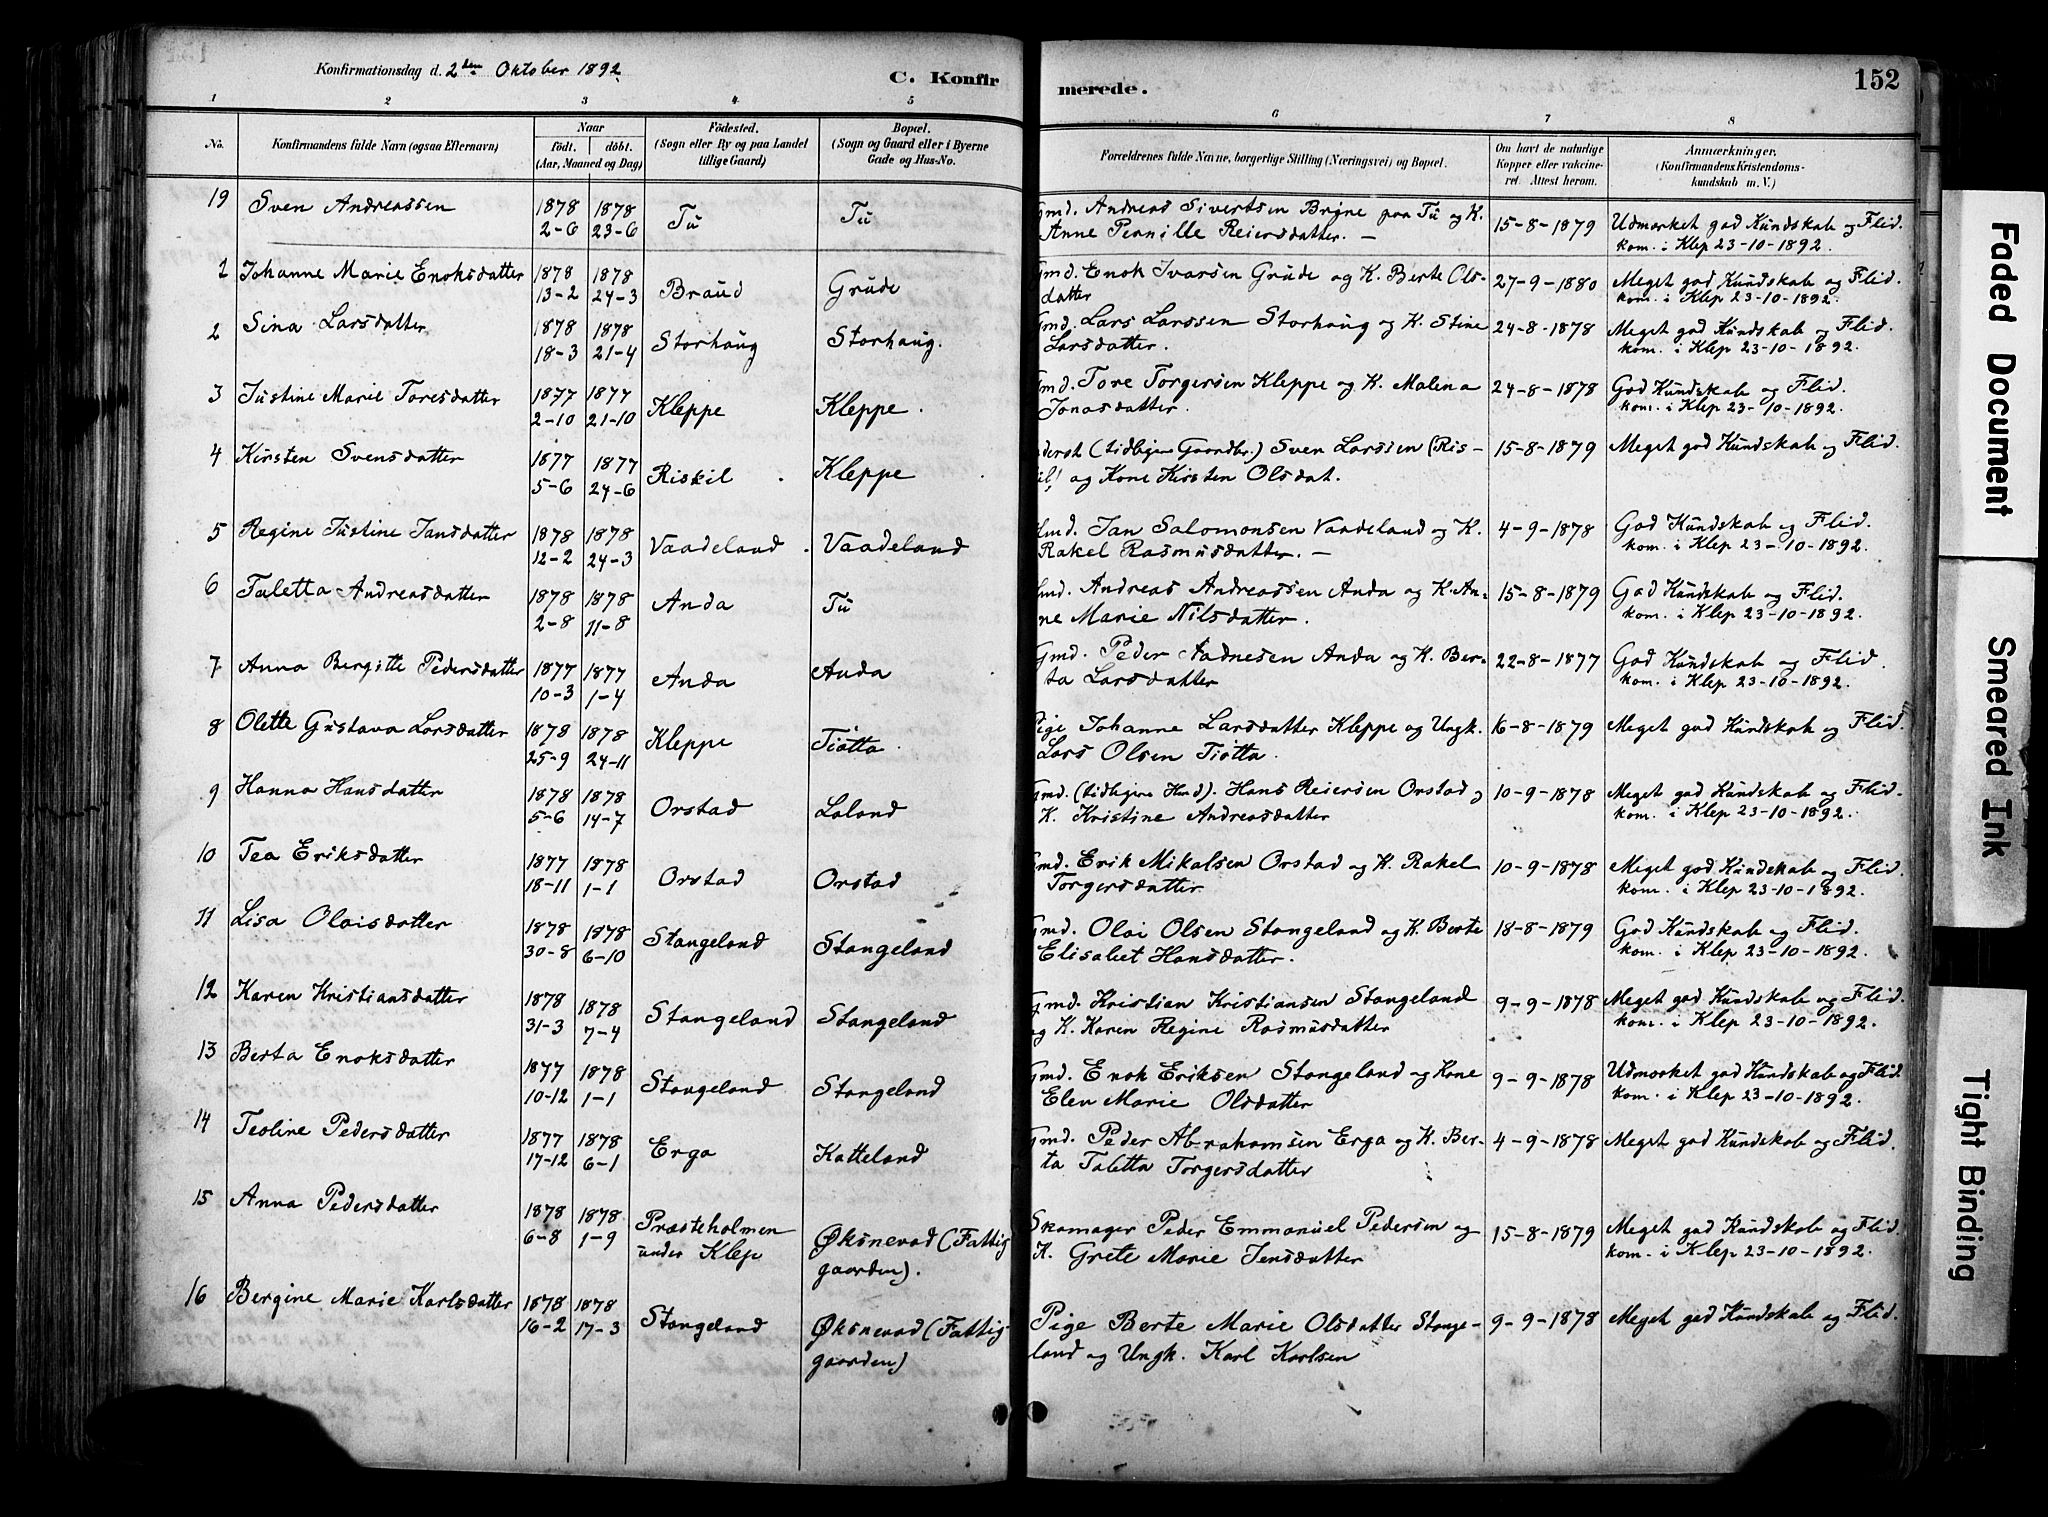 Konfirmationsdag d. 2den Oktober 1892.
C. Konfirmerede.
152
1 2 3 4 5 6 7 8
No.
Konfirmandens fulde Navn (ogsaa Efternavn)
Naar
födt. döbt.
(Aar, Maaned og Dag)
Födested.
(Sogn eller By og paa Landet
tillige Gaard)
Bopæl.
(Sogn og Gaard eller i Byerne
Gade og Hus-No.
Forældrenes fulde Navne, borgerlige Stilling (Næringsvei) og Bopæl.
Om havt de naturlige
Kopper eller vakcine-
ret. Attest herom.
Anmærkninger.
(Konfirmandens Kristendoms-
kundskab m. V.)
19 Sven Andreassen 1878 1878 Tu Tu Gmd. Andreas Sivertsen Bryne paa Tu og K. 15-8-1879 Udmærket god Kundskab og Flid.
2-6 23-6 Anne Pernille Reiersdatter. — kom. i Klep 23-10-1892.
1 Johanne Marie Enoksdatter 1878 1878 Braud Grude Gmd. Enok Ivarsen Grude og K. Berte Ols- 27-9-1880 Meget god Kundskab og Flid.
13-2 24-3 datter kom. i Klep 23-10-1892.
2 Sina Larsdatter 1878 1878 Storhaug Storhaug. Gmd. Lars Larssen Storhaug og K. Stine 24-8-1878 Meget god Kundskab og Flid.
18-3 21-4 Larsdatter. kom. i Klep 23-10-1892.
3 Justine Marie Toresdatter 1877 1877 Kleppe Kleppe. Gmd. Tore Torgersen Kleppe og K. Malena 24-8-1878 God Kundskab og Flid.
2-10 21-10 Jonasdatter. kom. i Klep 23-10-1892.
4 Kirsten Svensdatter 1877 1877 Riskil Kleppe (tidligere Gaardbr.) Sven Larssen (Ris- 15-8-1879 Meget god Kundskab og Flid.
5-6 24-6 og Kone Kirsten Olsdat.
5 Regine Justine Jansdatter 1878 1878 Vaadeland Vaadeland Jan Salomonsen Vaadeland og K. 4-9-1878 God Kundskab og Flid.
12-2 24-3 Rakel Rasmusdatter. — kom. i Klep 23-10-1892.
6 Taletta Andreasdatter 1878 1878 Anda Tu Andreas Andreassen Anda og K. An- 15-8-1879 God Kundskab og Flid.
2-8 11-8 ne Marie Nilsdatter. kom. i Klep 23-10-1892.
7 Anna Bergitte Pedersdatter 1877 1877 Anda Anda Gmd. Peder Aadnesen Anda og K. Ber- 22-8-1877 God Kundskab og Flid.
10-3 1-4 ta Larsdatter kom. i Klep 23-10-1892.
8 Olette Gustava Larsdatter 1878 1878 Kleppe Tiøtta. Pige Johanne Larsdatter Kleppe og Ungk. 16-8-1879 Meget god Kundskab og Flid.
25-9 24-11 Lars Olsen Tiøtta.
9 Hanna Hansdatter 1878 1878 Orstad Laland Gmd. (tidligere Husmd). Hans Reiersen Orstad og 10-9-1878 Meget god Kundskab og Flid.
5-6 14-7 K. Kristine Andreasdatter kom. i Klep 23-10-1892.
10 Tea Eriksdatter 1877 1878 Orstad Orstad Gmd. Erik Mikalsen Orstad og K. Rakel 10-9-1878 Meget god Kundskab og Flid.
18-11 1-1 Torgersdatter kom. i Klep 23-10-1892.
11 Lisa Olaisdatter 1878 1878 Stangeland Stangeland Gmd. Olai Olsen Stangeland og K. Berte 18-8-1879 God Kundskab og Flid.
30-8 6-10 Elisabet Hansdatter. kom. i Klep 23-10-1892.
12 Karen Kristiansdatter 1878 1878 Stangeland Stangeland Gmd. Kristian Kristiansen Stangeland 9-9-1878 Meget god Kundskab og Flid.
31-3 7-4 og K. Karen Regine Rasmusdatter kom. i Klep 23-10-1892.
13 Berta Enoksdatter 1877 1878 Stangeland Stangeland Gmd. Enok Eriksen Stangeland og Kone 9-9-1878 Udmærket god Kundskab og Flid.
10-12 1-1 Elen Marie Olsdatter kom. i Klep 23-10-1892.
14 Teoline Pedersdatter 1877 1878 Erga Katteland Gmd. Peder Abrahamsen Erga og K. Ber- 4-9-1878 Meget god Kundskab og Flid.
17-12 6-1 ta Taletta Torgersdatter
15 Anna Pedersdatter 1878 1878 Præsteholmen Øksnevad (Fattig Skomager Peder Emmanuel Pedersen og 15-8-1879 Meget god Kundskab og Flid.
6-8 1-9 under Klep gaarden). K. Grete Marie Jensdatter kom. i Klep 23-10-1892.
16 Bergine Marie Karlsdatter 1878 1878 Stangeland Øksnevad (Fattig- Pige Berte Marie Olsdatter Stange- 9-9-1878 Meget god Kundskab og Flid.
16-2 17-3 gaarden) land og Ungk. Karl Karlsen
Faded Document
Smeared Ink
Tight Binding